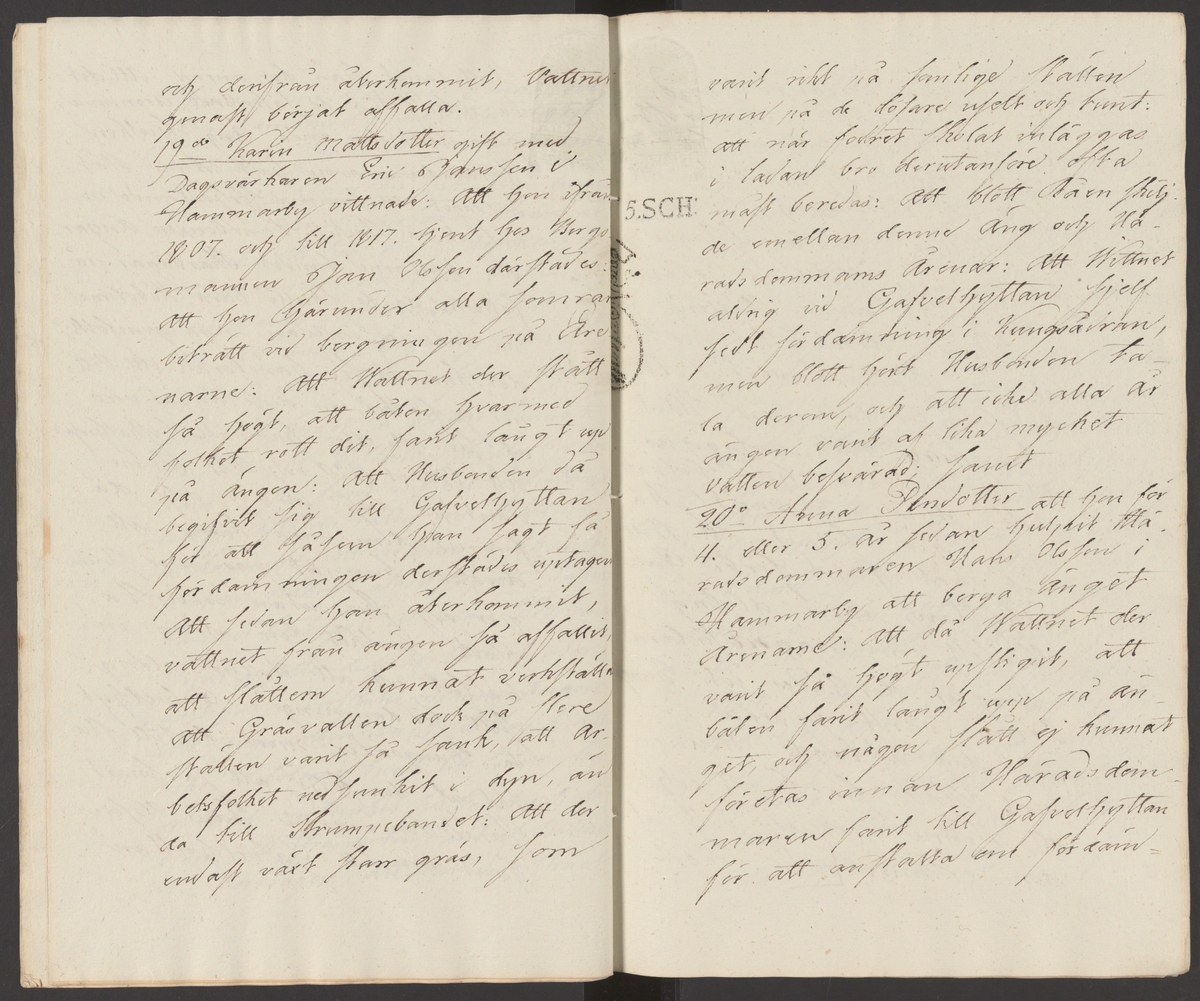 och derifrån återkommit, Vattnet
genast börjat affalla.
19do Karin Mattsdotter gift med
Dagsvärkaren Eric Jansson i
Hammarby vittnade: Att hon ifrån
1807. och till 1817. tjent hos Bergs
mannen Jan Olsson därstädes:
Att hon härunder alla somrar
beträtt vid bergningen på Äre
narne: Att Wattnet der stått
så högt, att båten hvarmed
folket rott dit, farit långt up
på ängen: Att Husbonden då
begifvit sig till Gafvelhyttan
för att såsom han sagt få
fördämningen derstädes uptagen
Att sedan han återkommit,
vattnet från ängen så affallit,
att slåttern kunnat verkställa
Att Gräsvallen dock på flere
ställen varit så sank, att Ar-
betsfolket nedsunkit i dyn, än
da till Strumpebandet: Att der
endast växt starr gräs, som
varit rikt på sanlige ställen
men på de lösare uselt och tunt:
att när fodret skolat inläggas
i ladan bro derutanföre ofta
måst beredas: Att blott Åäen skilj-
de emellan denne äng och Hä-
radsdommarns Ärenar: Att Wittnet
aldrig vid Gafvelhyttan sjelf
sedt fördämning i Kungsådran,
men blott hört Husbonden ta-
la derom, och att icke alla år
ängen varit af lika mycket
vatten besvärad; samt
20o Anna Persdotter att hon för
4. eller 5. år sedan hulpit Hä-
radsdommaren Hans Olsson i
Hammarby att berga änget
Ärenarne: Att då Wattnet der
varit så högt upstigit, att
båten farit långt upp på än-
get, och någon slått ej kunnat
företas innan Häradsdom-
maren farit till Gafvelhyttan
för att anstalta om fördäm-
5.SCH: